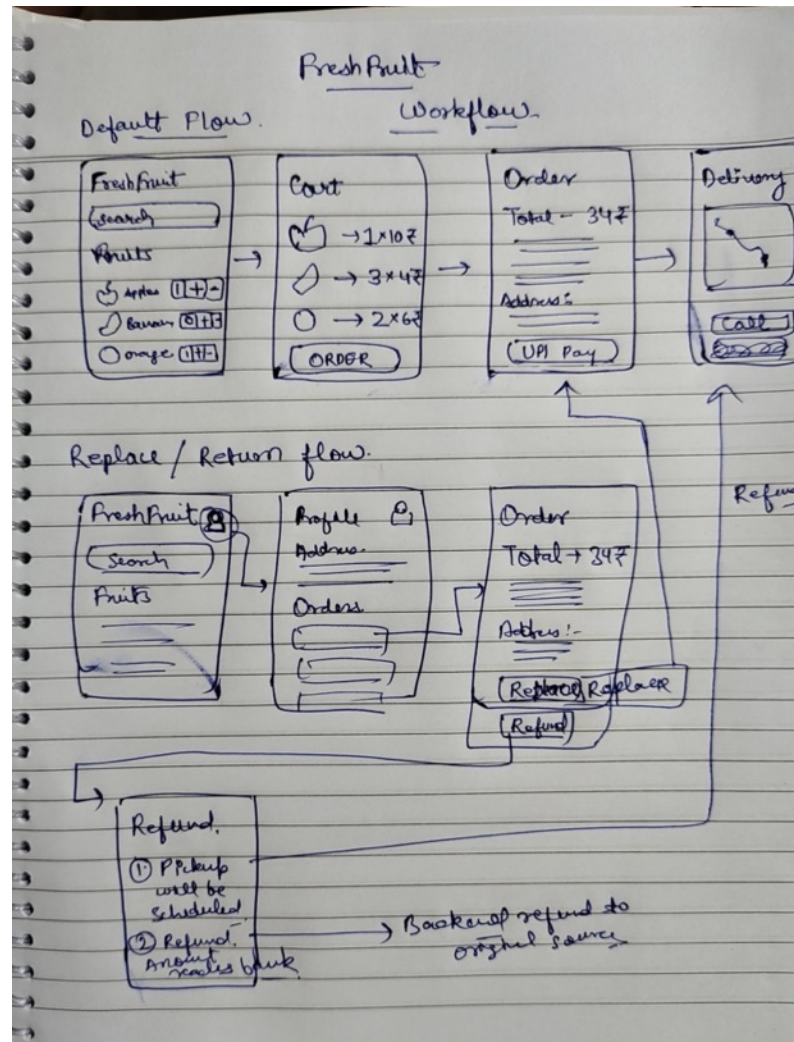 FreshFruit
Workflow.
Default Flow.
FreshFruit
Search
Fruits
Apples 1 + -
Banana 0 + -
Orange 1 + -
Cart
→ 1×10₹
→ 3×4₹
→ 2×6₹
ORDER
Order
Total - 34₹
Address:
UPI Pay
Delivery
Call
Replace / Return flow.
FreshFruit
Search
Fruits
Profile
Address
Orders
Order
Total → 34₹
Address:-
Replace
Refund
Refund.
① Pickup
will be
scheduled
② Refund.
Amount
bank
Backend refund to
original source